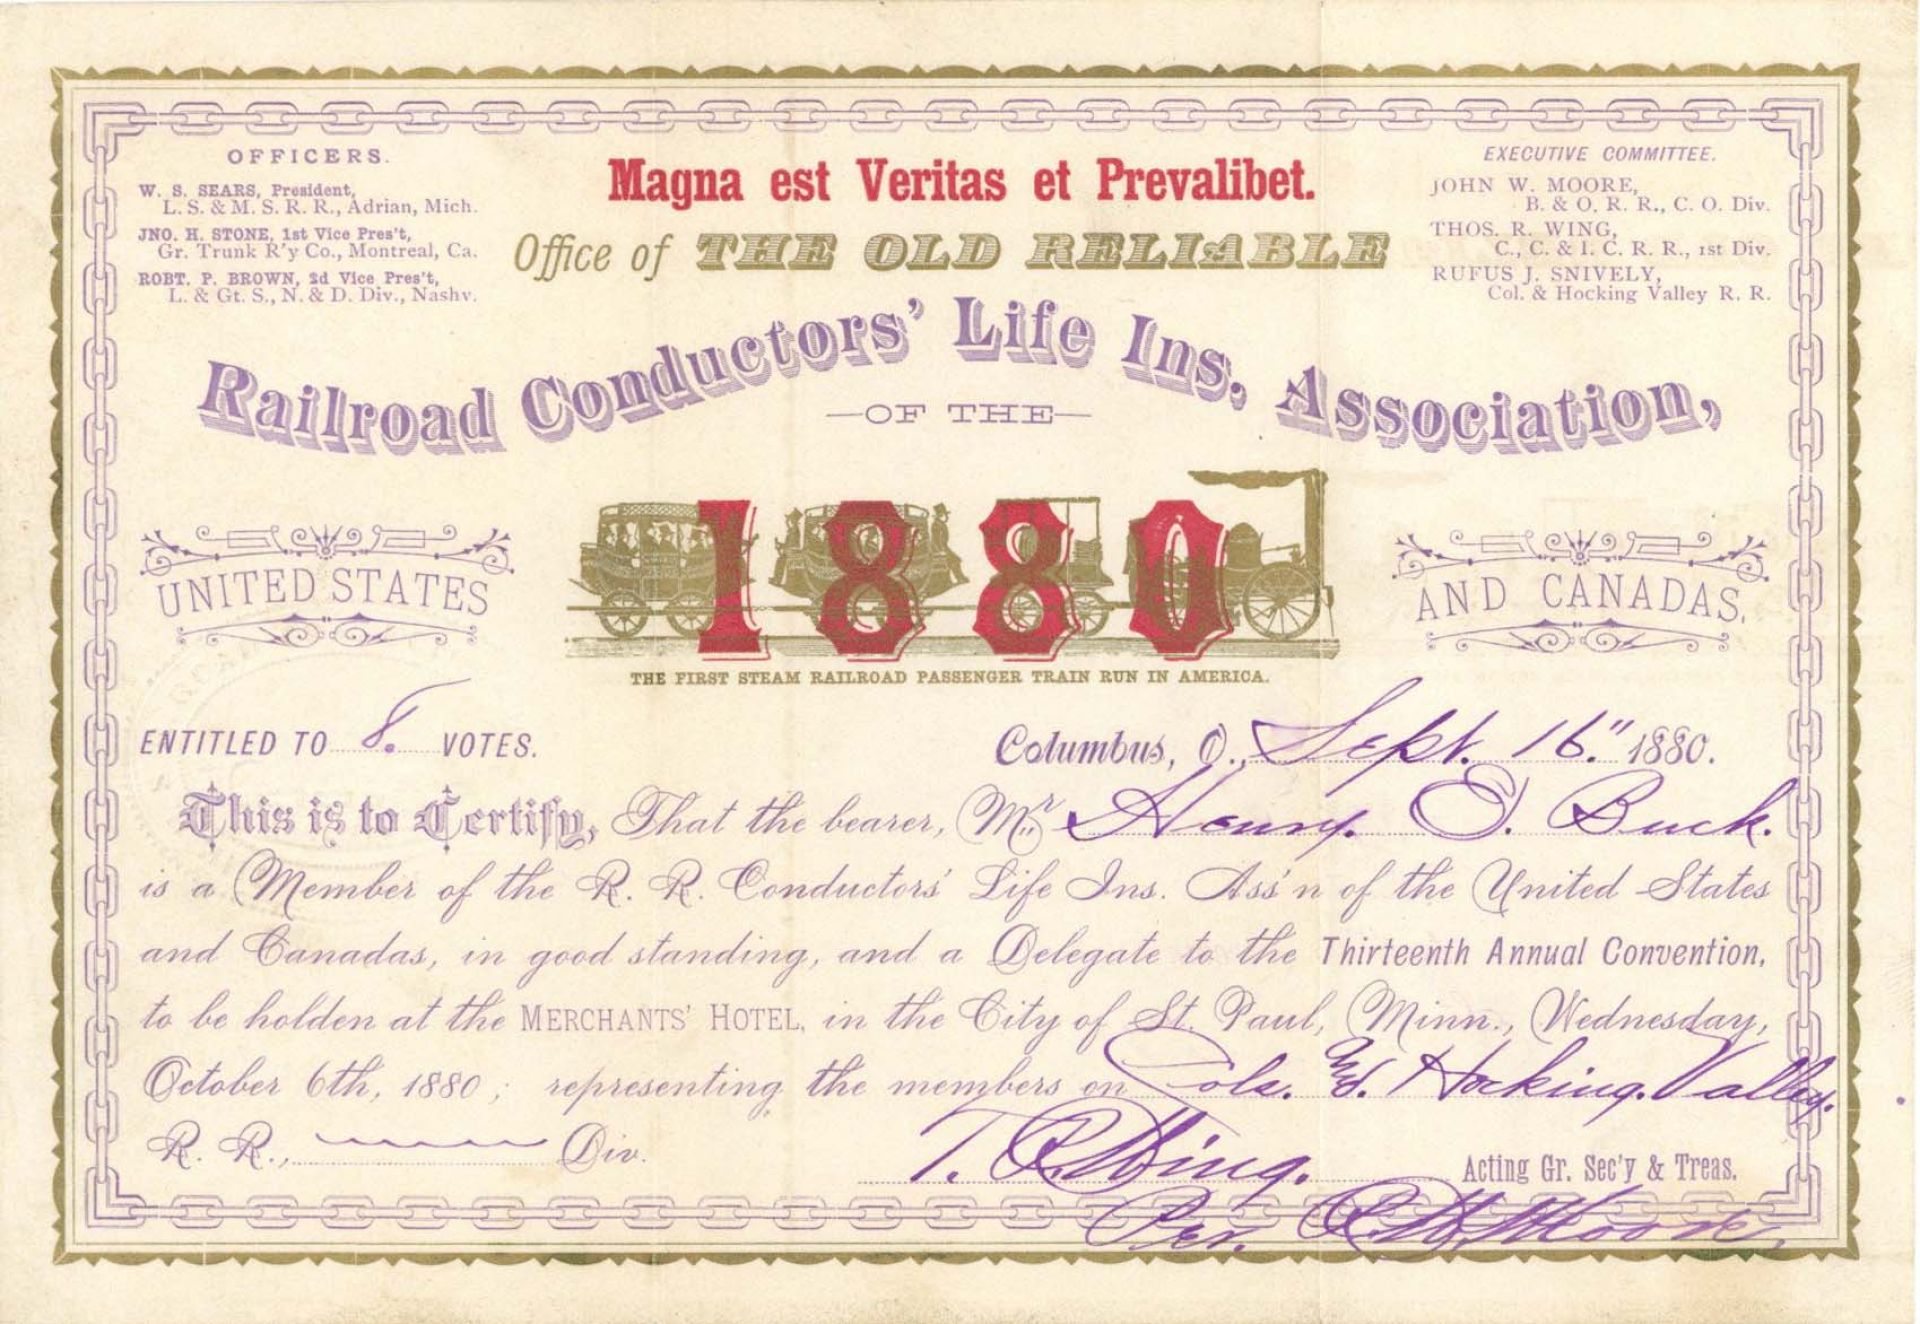 OFFICERS.
W. S. SEARS, President,
L. S. & M. S. R. R., Adrian, Mich.
JNO. H. STONE, 1st Vice Pres't,
Gr. Trunk R'y Co., Montreal, Ca.
ROBT. P. BROWN, 2d Vice Pres't,
L. & Gt. S., N. & D. Div., Nashv.
Magna est Veritas et Prevalibet.
Office of THE OLD RELIABLE
EXECUTIVE COMMITTEE.
JOHN W. MOORE,
B. & O. R. R., C. O. Div.
THOS. R. WING,
C., C. & I. C. R. R., 1st Div.
RUFUS J. SNIVELY,
Col. & Hocking Valley R. R.
Railroad Conductors' Life Ins. Association,
—OF THE—
UNITED STATES
1880
AND CANADAS,
THE FIRST STEAM RAILROAD PASSENGER TRAIN RUN IN AMERICA.
ENTITLED TO 8. VOTES.
Columbus, O., Sept. 16" 1880.
This is to Certify, That the bearer, Mr Henry. O. Buck.
is a Member of the R. R. Conductors' Life Ins. Ass'n of the United States
and Canadas, in good standing, and a Delegate to the Thirteenth Annual Convention,
to be holden at the MERCHANTS' HOTEL, in the City of St. Paul, Minn., Wednesday,
October 6th, 1880; representing the members on Cols. and. Hocking. Valley.
R. R., Div.
T. R. Wing. Acting Gr. Sec'y & Treas.
Per. Moore.